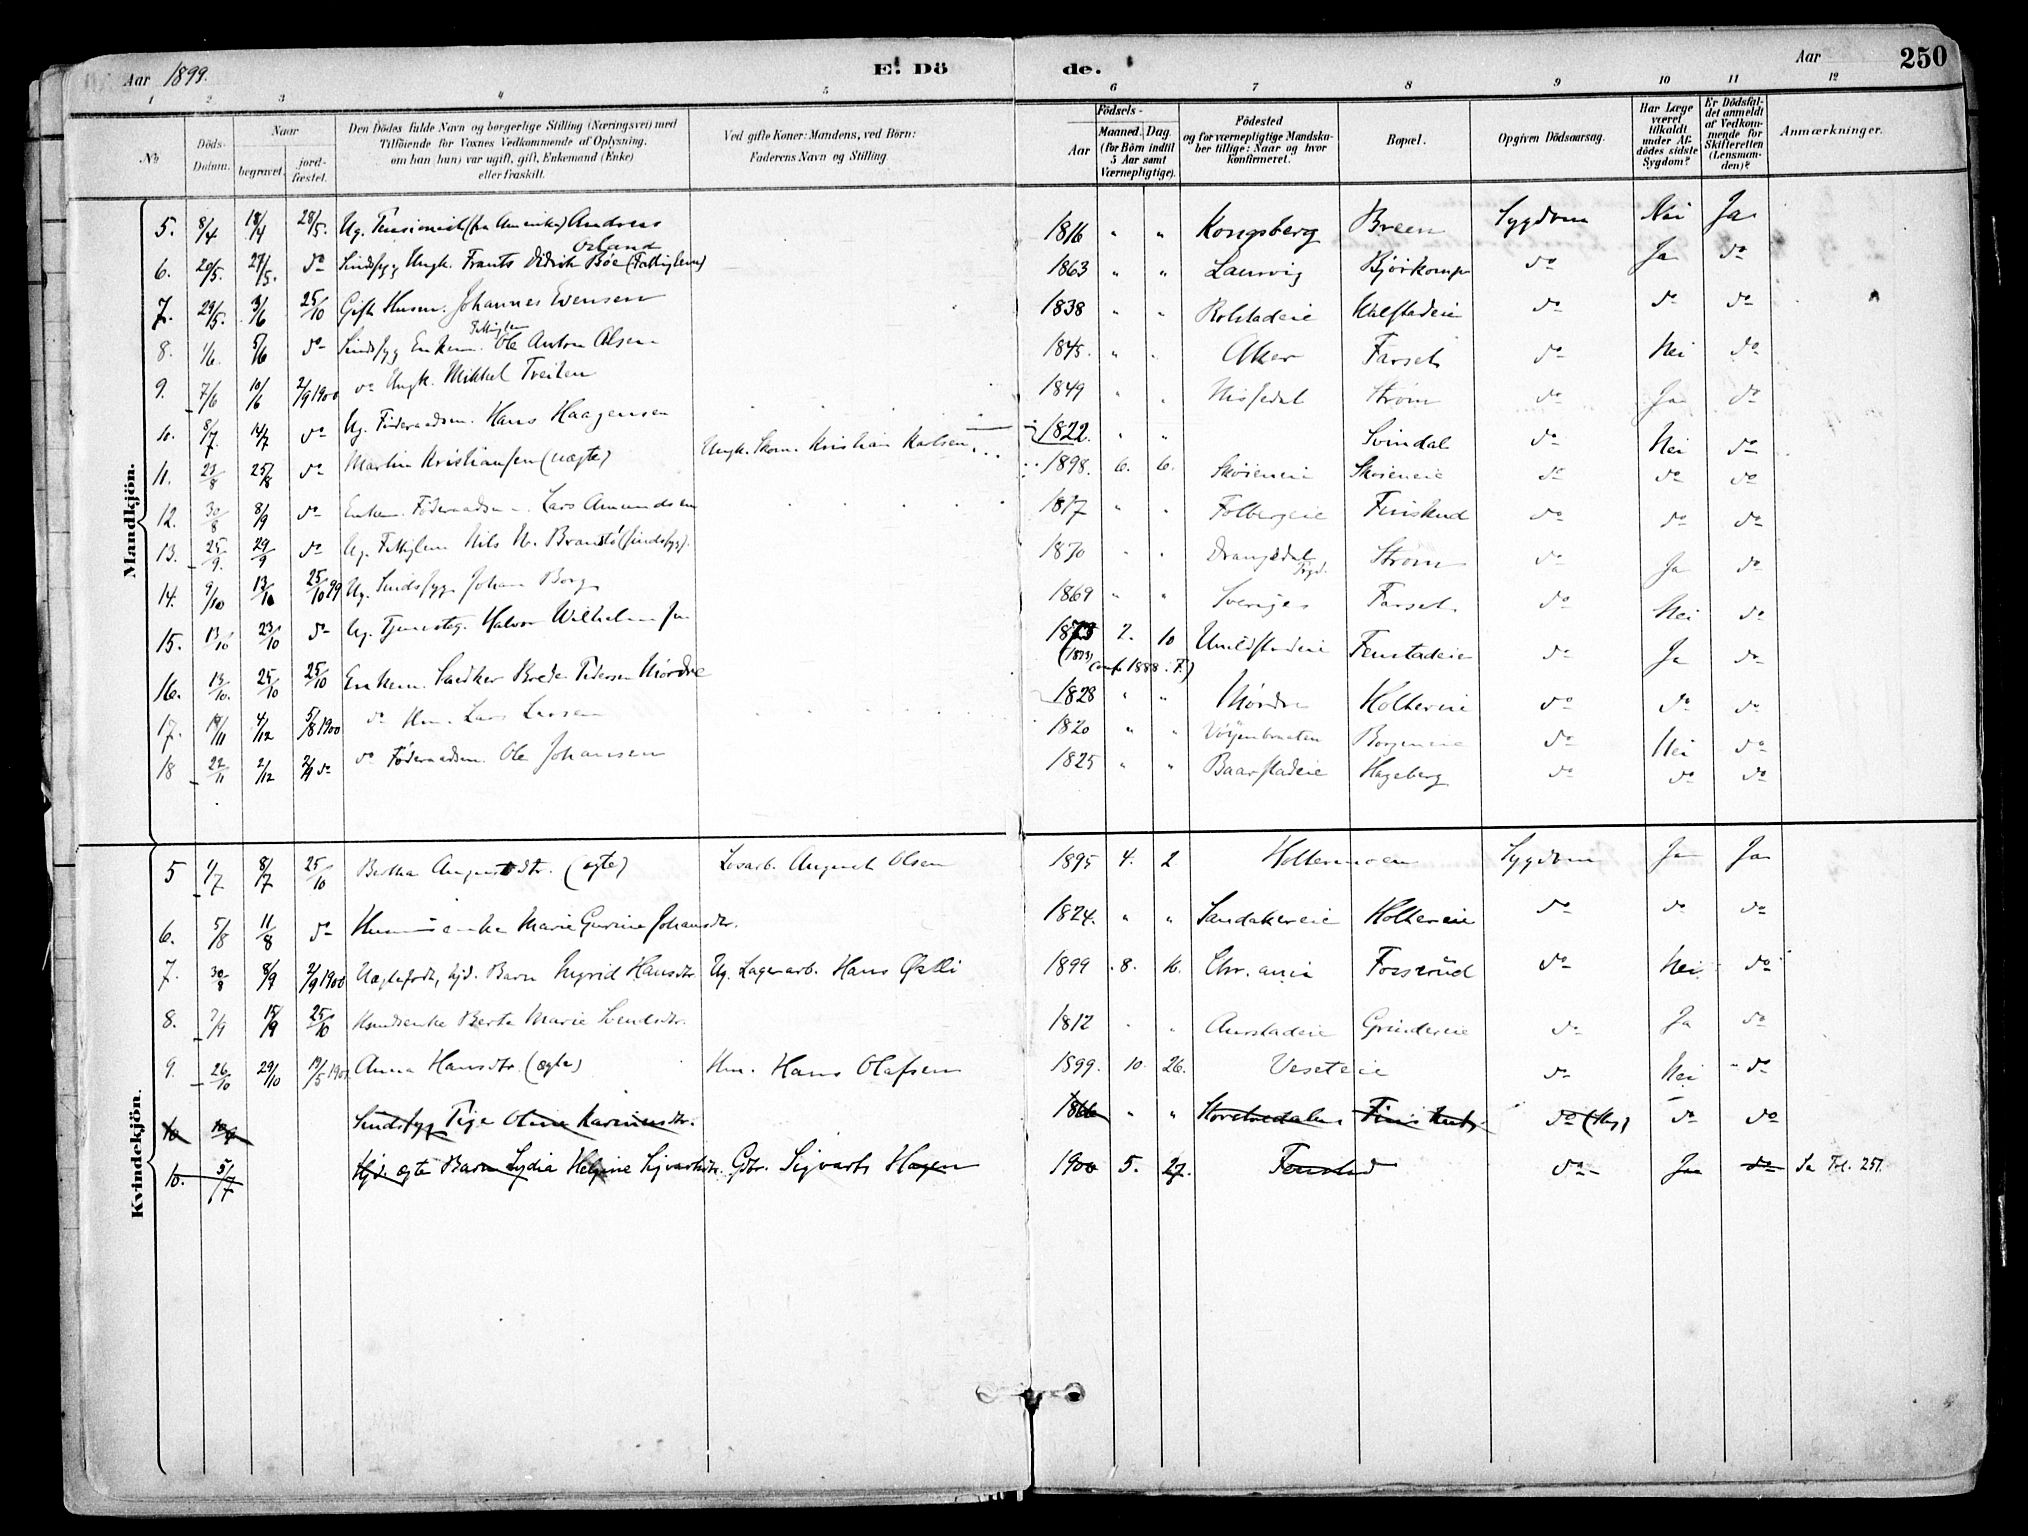 Aar 1899.
E. Döde.
Aar
250
1 2 3 4 5 6 7 8 9 10 11 12
No
Döds-Datum.
Naar
begravet.
jord-fæstet.
Den Dödes fulde Navn og borgerlige Stilling (Næringsvei) med
Tilföiende for Voxnes Vedkommende af Oplysning,
om han (hun) var ugift, gift, Enkemand (Enke)
eller fraskilt.
Ved gifte Koner: Mandens, ved Börn:
Faderens Navn og Stilling
Födsels-
Aar
Maaned. Dag.
(for Börn indtil
5 Aar samt
Værnepligtige).
Födested
og for værnepligtige Mandska-
ber tillige: Naar og hvor
konfirmeret.
Bopæl.
Opgiven Dödsaarsag.
Har Læge
været
tilkaldt
under Af-
dødes sidste
Sygdom?
Er Dödsfal-
det anmeldt
af Vedkom-
mende for
Skifteretten
(Lensman-
den)?
Anmærkninger.
Mandkjön.
5. 8/4 18/4 28/5. Ug. Pensionist (fra Amerika) Andreas Orland 1816 " " Kongsberg Breen Sygdom Nei Ja
6. 20/5. 27/5. do Sindssyg Ungk. Frants Didrik Böe (Fattiglem) 1863 " " Laurvig Bjørkomp do Ja do
7. 29/5. 3/6 25/10 Gift Husm. Johannes Evensen 1838 " " Rolstadeie Ulvestadeie do do do
8. 1/6. 5/6 do Sindssyg Enkem. Fattiglem Ole Anton Olsen 1845 " " Aker Farseth do Nei do
9. 7/6 10/6 2/9 1900 do Ungk. Mikkel Treiten 1849 " " Nissedal Strøm do Ja do
10. 8/7. 14/7 do Ug. Föderaadsm. Hans Haagensen 1822. " " Svindal do Nei do
11. 23/8 25/8 do Martin Kristiansen (uægte) Ungk. Skom. Kristian Karlsen 1898. 6. 6. Skøieneie Skøieneie do do do
12. 30/8 8/9 do Enkem. Føderaadsm. Lars Amundsen 1817 " " Folbergeie Finskud do do do
13. 25/9. 29/9 do Ug. Fattiglem Nils N. Branstö (sindssyg). 1870 " " Drangedal Strøm do Ja do
14. 9/10 13/10 25/10 99 Ug. Sindssyg Johan Borg 1869 " " Sverige Farseth do Nei do
15. 13/10 23/10 do Ug. Tjenesteg. Halvor Wilhelmsen 1873 2. 10 Unildstadeie Fenstadeie do Ja do
(1873) (conf. 1888. F.)
16. 13/10. 25/10 25/10 Enkem. Snedker Brede Pedersen Mördre 1828 " " Mördre Holtereie do do do
17. 19/11 4/12 5/8 1900 do Hm. Lars Larsen 1820 " " Vöyenbraaten Borgeneie do Nei do
18 22/11 2/12 2/9 do do Føderaadsm. Ole Johansen 1825 " " Baarstadeie Hageberg do do do
Kvindekjön.
5 1/7 8/7 25/10 Bertha Augustdtr. (ægte) Løsarb. August Olsen 1895 4. 2 Holtermoen Sygdom Ja Ja
6. 5/8 11/8 do Husmandsenke Marie Gurine Johansdtr. 1824. " " Sandakereie Holtereie do do do
7. 30/8 8/9 2/9 1900 Uægtefødt, hjd. Barn Ingrid Hansdtr. Ug. Lagerarb. Hans Østli 1899 8. 16. Chr.ania Fossrud do Nei do
8. 7/9 15/9 25/10 Husmdsenke Berte Marie Svendsdtr. 1812 " " Aurstadeie Grindereie do Ja do
9. 26/10 29/10 19/5 190 Anna Hansdtr. (ægte) Hm. Hans Olafsen 1899. 10. 26. Veseteie do Nei do
10 Sindssyg Pige Oline Karinesdtr. 1866 " " do do do
10. 5/7 Hjd. ægte Barn Lydia Helfine Sigvartsdtr. Gbr. Sigvart Hagen 1900 5. 27. Fenstad do Ja do Se Fol. 251.